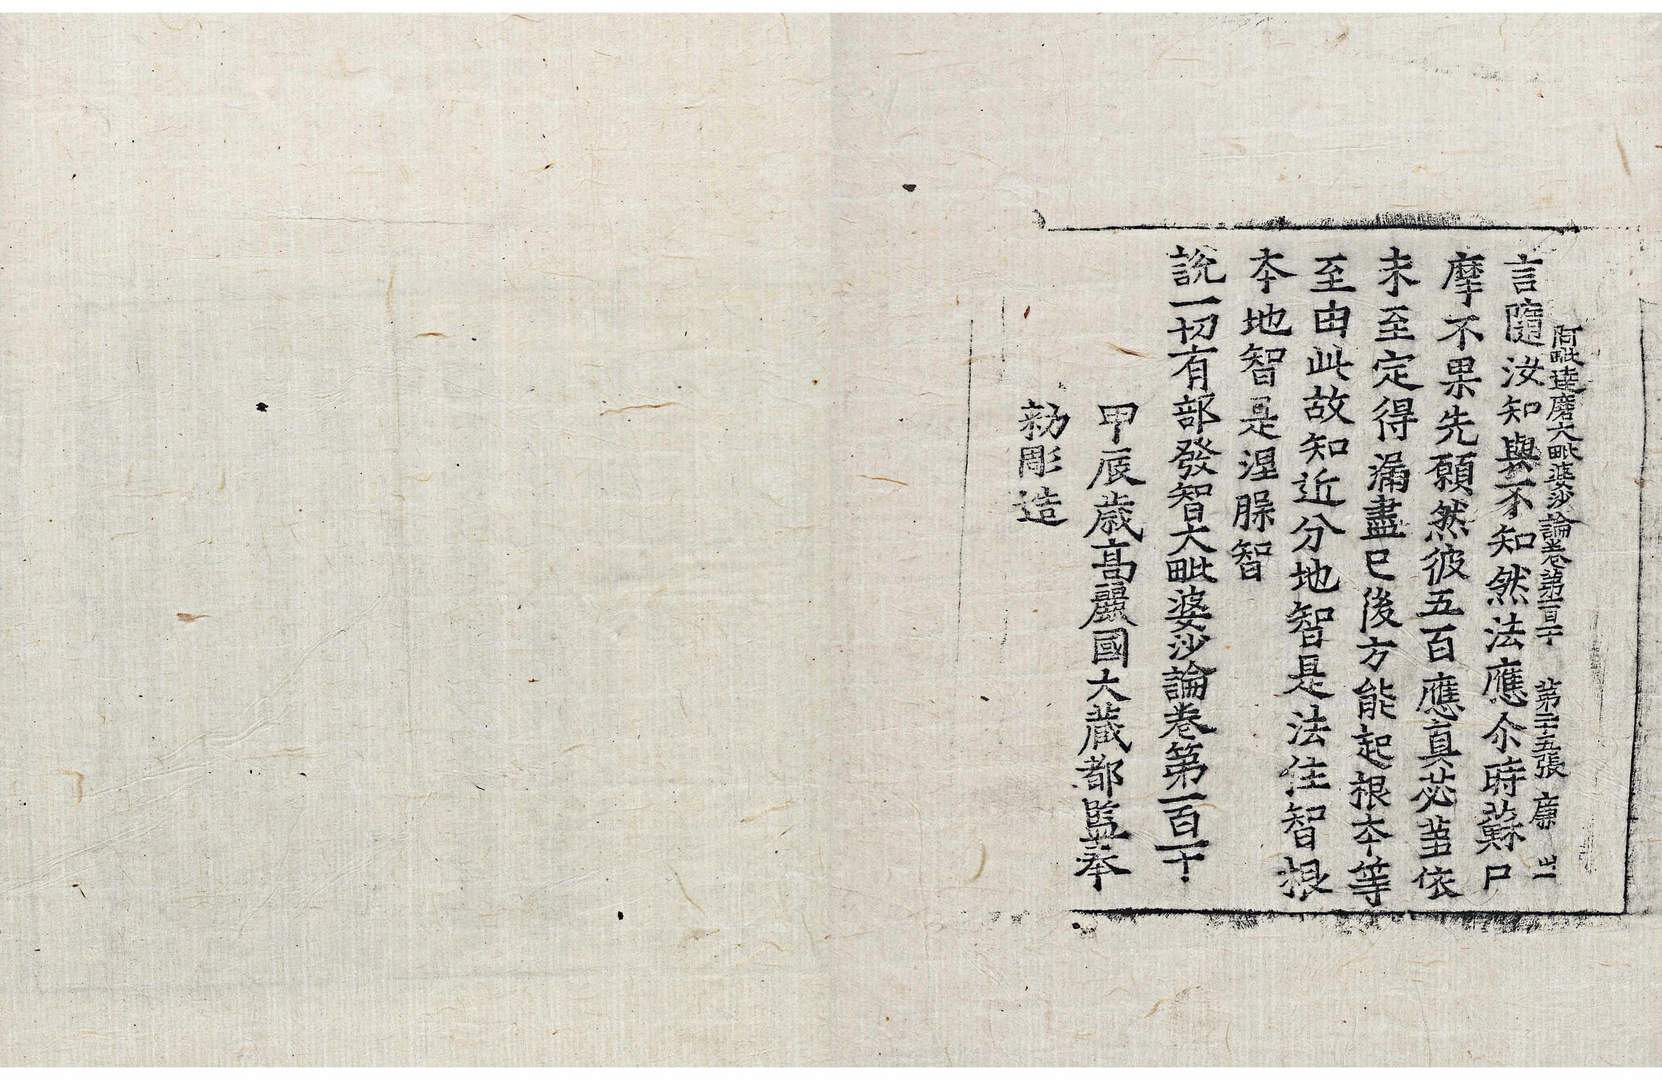 阿毗達磨大毗婆沙論卷第一百一十 第二十五張 廉 卅一
言隨汝知與不知然法應尒時蘇尸
摩不果先願然彼五百應真苾蒭依
未至定得漏盡已後方能起根本等
至由此故知近分地智是法住智根
本地智是涅槃智
說一切有部發智大毗婆沙論卷第一百一十
甲辰歲高麗國大藏都監奉
勑彫造